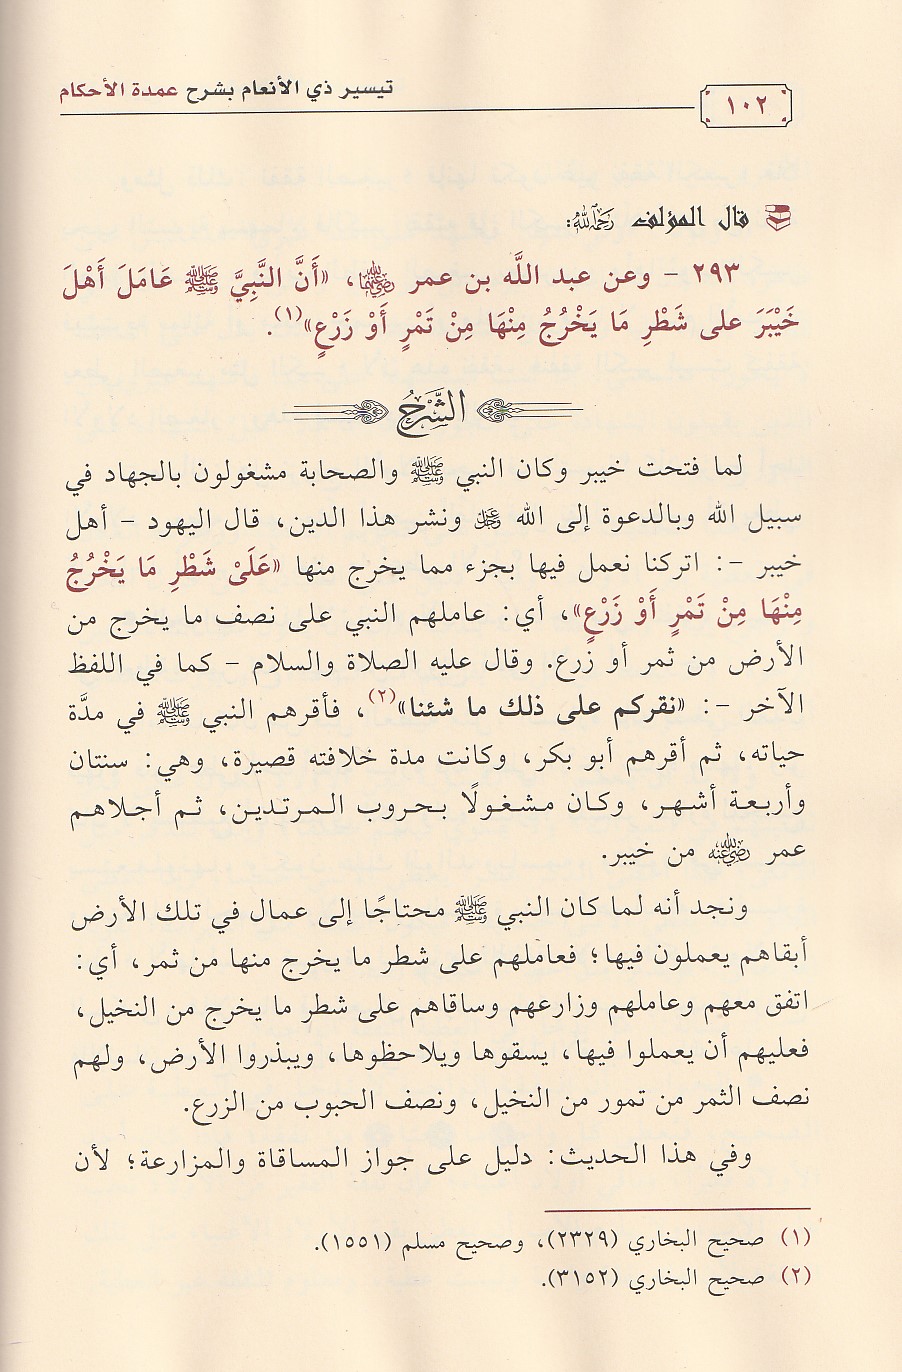 تيسير ذي الأنعام بشرح عمدة الأحكام
١٠٢
قال المؤلف رحمه الله:
٢٩٣ - وعن عبد اللَّه بن عمر رضي الله عنهما، «أَنَّ النَّبِيَّ ﷺ عَامَلَ أَهْلَ
خَيْبَرَ على شَطْرِ مَا يَخْرُجُ مِنْهَا مِنْ تَمْرٍ أَوْ زَرْعٍ»(١).
الشَّرْحُ
لما فتحت خيبر وكان النبي ﷺ والصحابة مشغولون بالجهاد في
سبيل الله وبالدعوة إلى الله عز وجل ونشر هذا الدين، قال اليهود - أهل
خيبر -: اتركنا نعمل فيها بجزء مما يخرج منها «عَلَىْ شَطْرِ مَا يَخْرُجُ
مِنْهَا مِنْ تَمْرٍ أَوْ زَرْعٍ»، أي: عاملهم النبي على نصف ما يخرج من
الأرض من ثمر أو زرع. وقال عليه الصلاة والسلام - كما في اللفظ
الآخر -: «نقركم على ذلك ما شئنا»(٢)، فأقرهم النبي ﷺ في مدَّة
حياته، ثم أقرهم أبو بكر، وكانت مدة خلافته قصيرة، وهي: سنتان
وأربعة أشهر، وكان مشغولًا بحروب المرتدين، ثم أجلاهم
عمر رضي الله عنه من خيبر.
ونجد أنه لما كان النبي ﷺ محتاجًا إلى عمال في تلك الأرض
أبقاهم يعملون فيها؛ فعاملهم على شطر ما يخرج منها من ثمر، أي:
اتفق معهم وعاملهم وزارعهم وساقاهم على شطر ما يخرج من النخيل،
فعليهم أن يعملوا فيها، يسقوها ويلاحظوها، ويبذروا الأرض، ولهم
نصف الثمر من تمور من النخيل، ونصف الحبوب من الزرع.
وفي هذا الحديث: دليل على جواز المساقاة والمزارعة؛ لأن
(١) صحيح البخاري (٢٣٢٩)، وصحيح مسلم (١٥٥١).
(٢) صحيح البخاري (٣١٥٢).